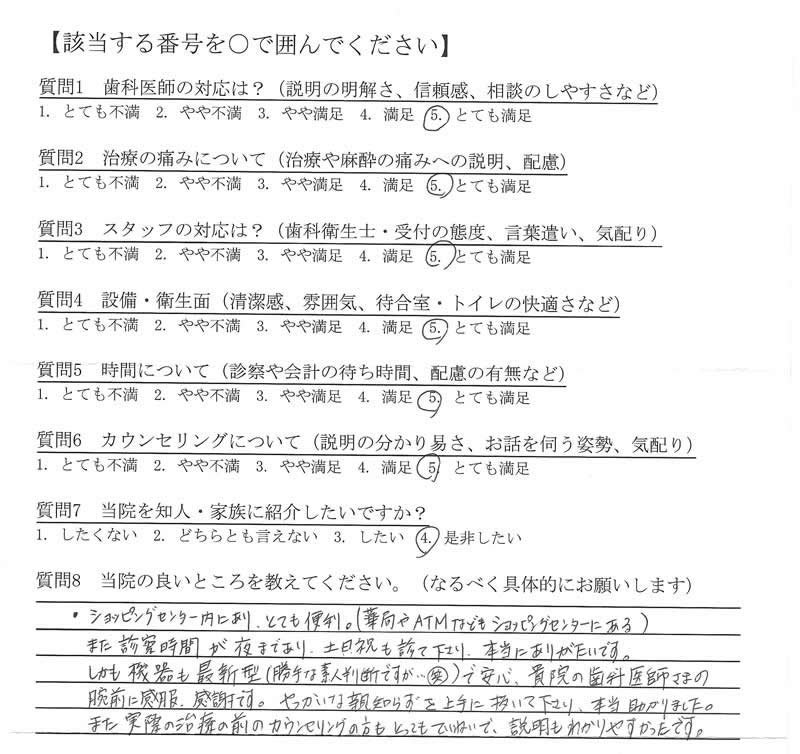 【該当する番号を○で囲んでください】
質問1 歯科医師の対応は？（説明の明解さ、信頼感、相談のしやすさなど）
1. とても不満 2. やや不満 3. やや満足 4. 満足 5. とても満足
質問2 治療の痛みについて（治療や麻酔の痛みへの説明、配慮）
1. とても不満 2. やや不満 3. やや満足 4. 満足 5. とても満足
質問3 スタッフの対応は？（歯科衛生士・受付の態度、言葉遣い、気配り）
1. とても不満 2. やや不満 3. やや満足 4. 満足 5. とても満足
質問4 設備・衛生面（清潔感、雰囲気、待合室・トイレの快適さなど）
1. とても不満 2. やや不満 3. やや満足 4. 満足 5. とても満足
質問5 時間について（診察や会計の待ち時間、配慮の有無など）
1. とても不満 2. やや不満 3. やや満足 4. 満足 5. とても満足
質問6 カウンセリングについて（説明の分かり易さ、お話を伺う姿勢、気配り）
1. とても不満 2. やや不満 3. やや満足 4. 満足 5. とても満足
質問7 当院を知人・家族に紹介したいですか？
1. したくない 2. どちらとも言えない 3. したい 4. 是非したい
質問8 当院の良いところを教えてください。（なるべく具体的にお願いします）
・ショッピングセンター内にあり、とても便利。(薬局やATMなどもショッピングセンターにある)
また診察時間が夜まであり、土日祝も診て下さり、本当にありがたいです。
しかも機器も最新型(勝手な素人判断ですが…笑)で安心、貴院の歯科医師さまの
腕前に感服、感謝です。やっかいな親知らずを上手に抜いて下さり、本当助かりました。
また実際の治療の前のカウンセリングの方もとってもていねいで、説明もわかりやすかったです。